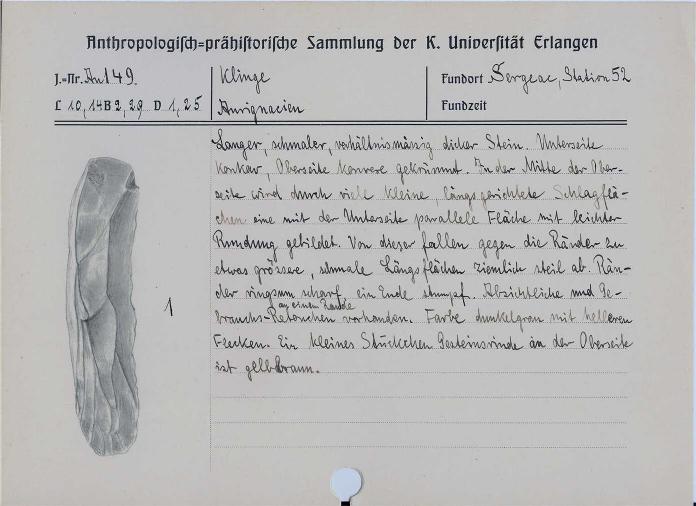 Anthropologisch=prähistorische Sammlung der K. Universität Erlangen
J.=Nr. Au 149.
Klinge
Fundort Sergeac, Station 52
L 10,14 B 2,29 D 1,25
Aurignacien
Fundzeit
Langer, schmaler, verhältnismässig dicker Stein. Unterseite
konkav, Oberseite konvex gekrümmt. In der Mitte der Ober-
seite wird durch viele kleine, längsgerichtete Schlagflä-
chen eine mit der Unterseite parallele Fläche mit leichter
Rundung gebildet. Von dieser fallen gegen die Ränder zu
etwas grössere, schmale Längsflächen ziemlich steil ab. Rän-
der ringsum scharf, ein Ende stumpf. Absichtliche und Ge-
an einem Rande
brauchs-Retouchen vorhanden. Farbe dunkelgrau mit helleren
Flecken. Ein kleines Stückchen Gesteinsrinde an der Oberseite
ist gelbbraun.
1